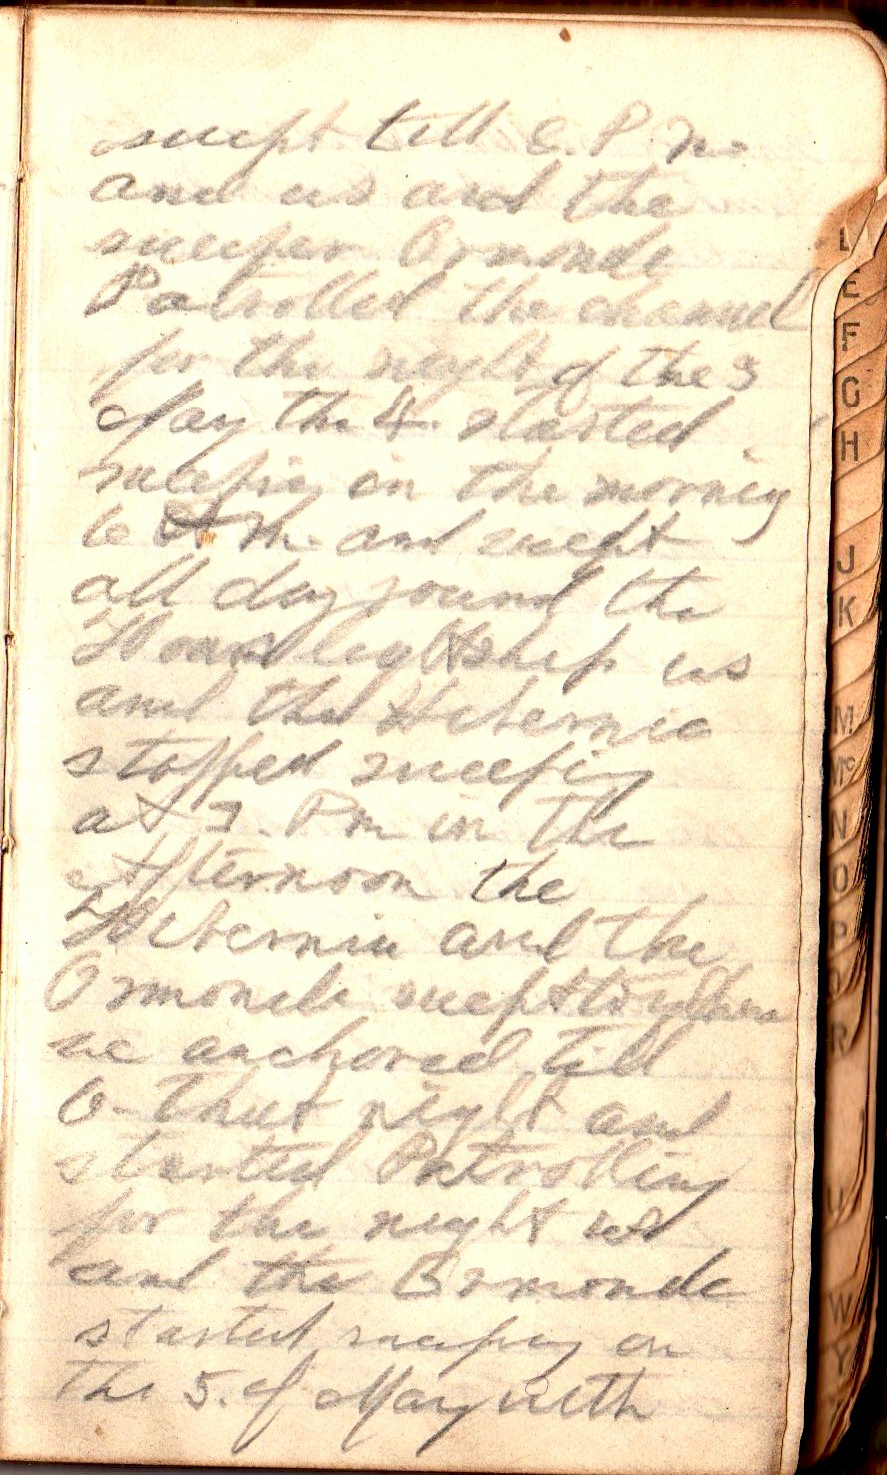 swept till 6. P. M.
and us and the
sweeper Ormonde
Patrolled the channel
for the night of the 3
May the 4. started
sweeping in the morning
6 A M. and swept
all day round the
lightship us
and the Hibernia
stopped sweeping
at 2. Pm in the
Afternoon the
Hibernia and the
Ormonde swept together
we anchored till
6. that night and
started Patrolling
for the night us
and the Ormonde
started sweeping on
the 5. of May with
L
E
F
G
H
J
K
M
Mc
N
O
P
Q
R
U
W
Y